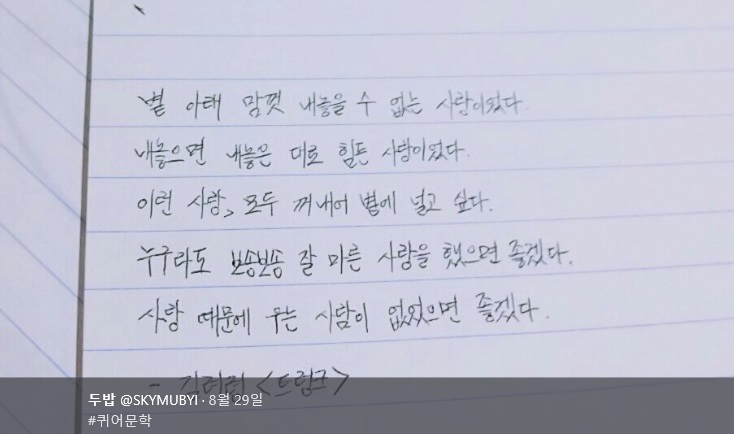 볕 아래 맘껏 내놓을 수 없는 사랑이었다.
내놓으면 내놓은 대로 힘든 사랑이었다.
이런 사랑, 모두 꺼내어 볕에 널고 싶다.
누구라도 보송보송 잘 마른 사랑을 했으면 좋겠다.
사랑 때문에 우는 사람이 없었으면 좋겠다.
- 김려령 <트렁크>
두밥 @SKYMUBYI · 8월 29일
#퀴어문학